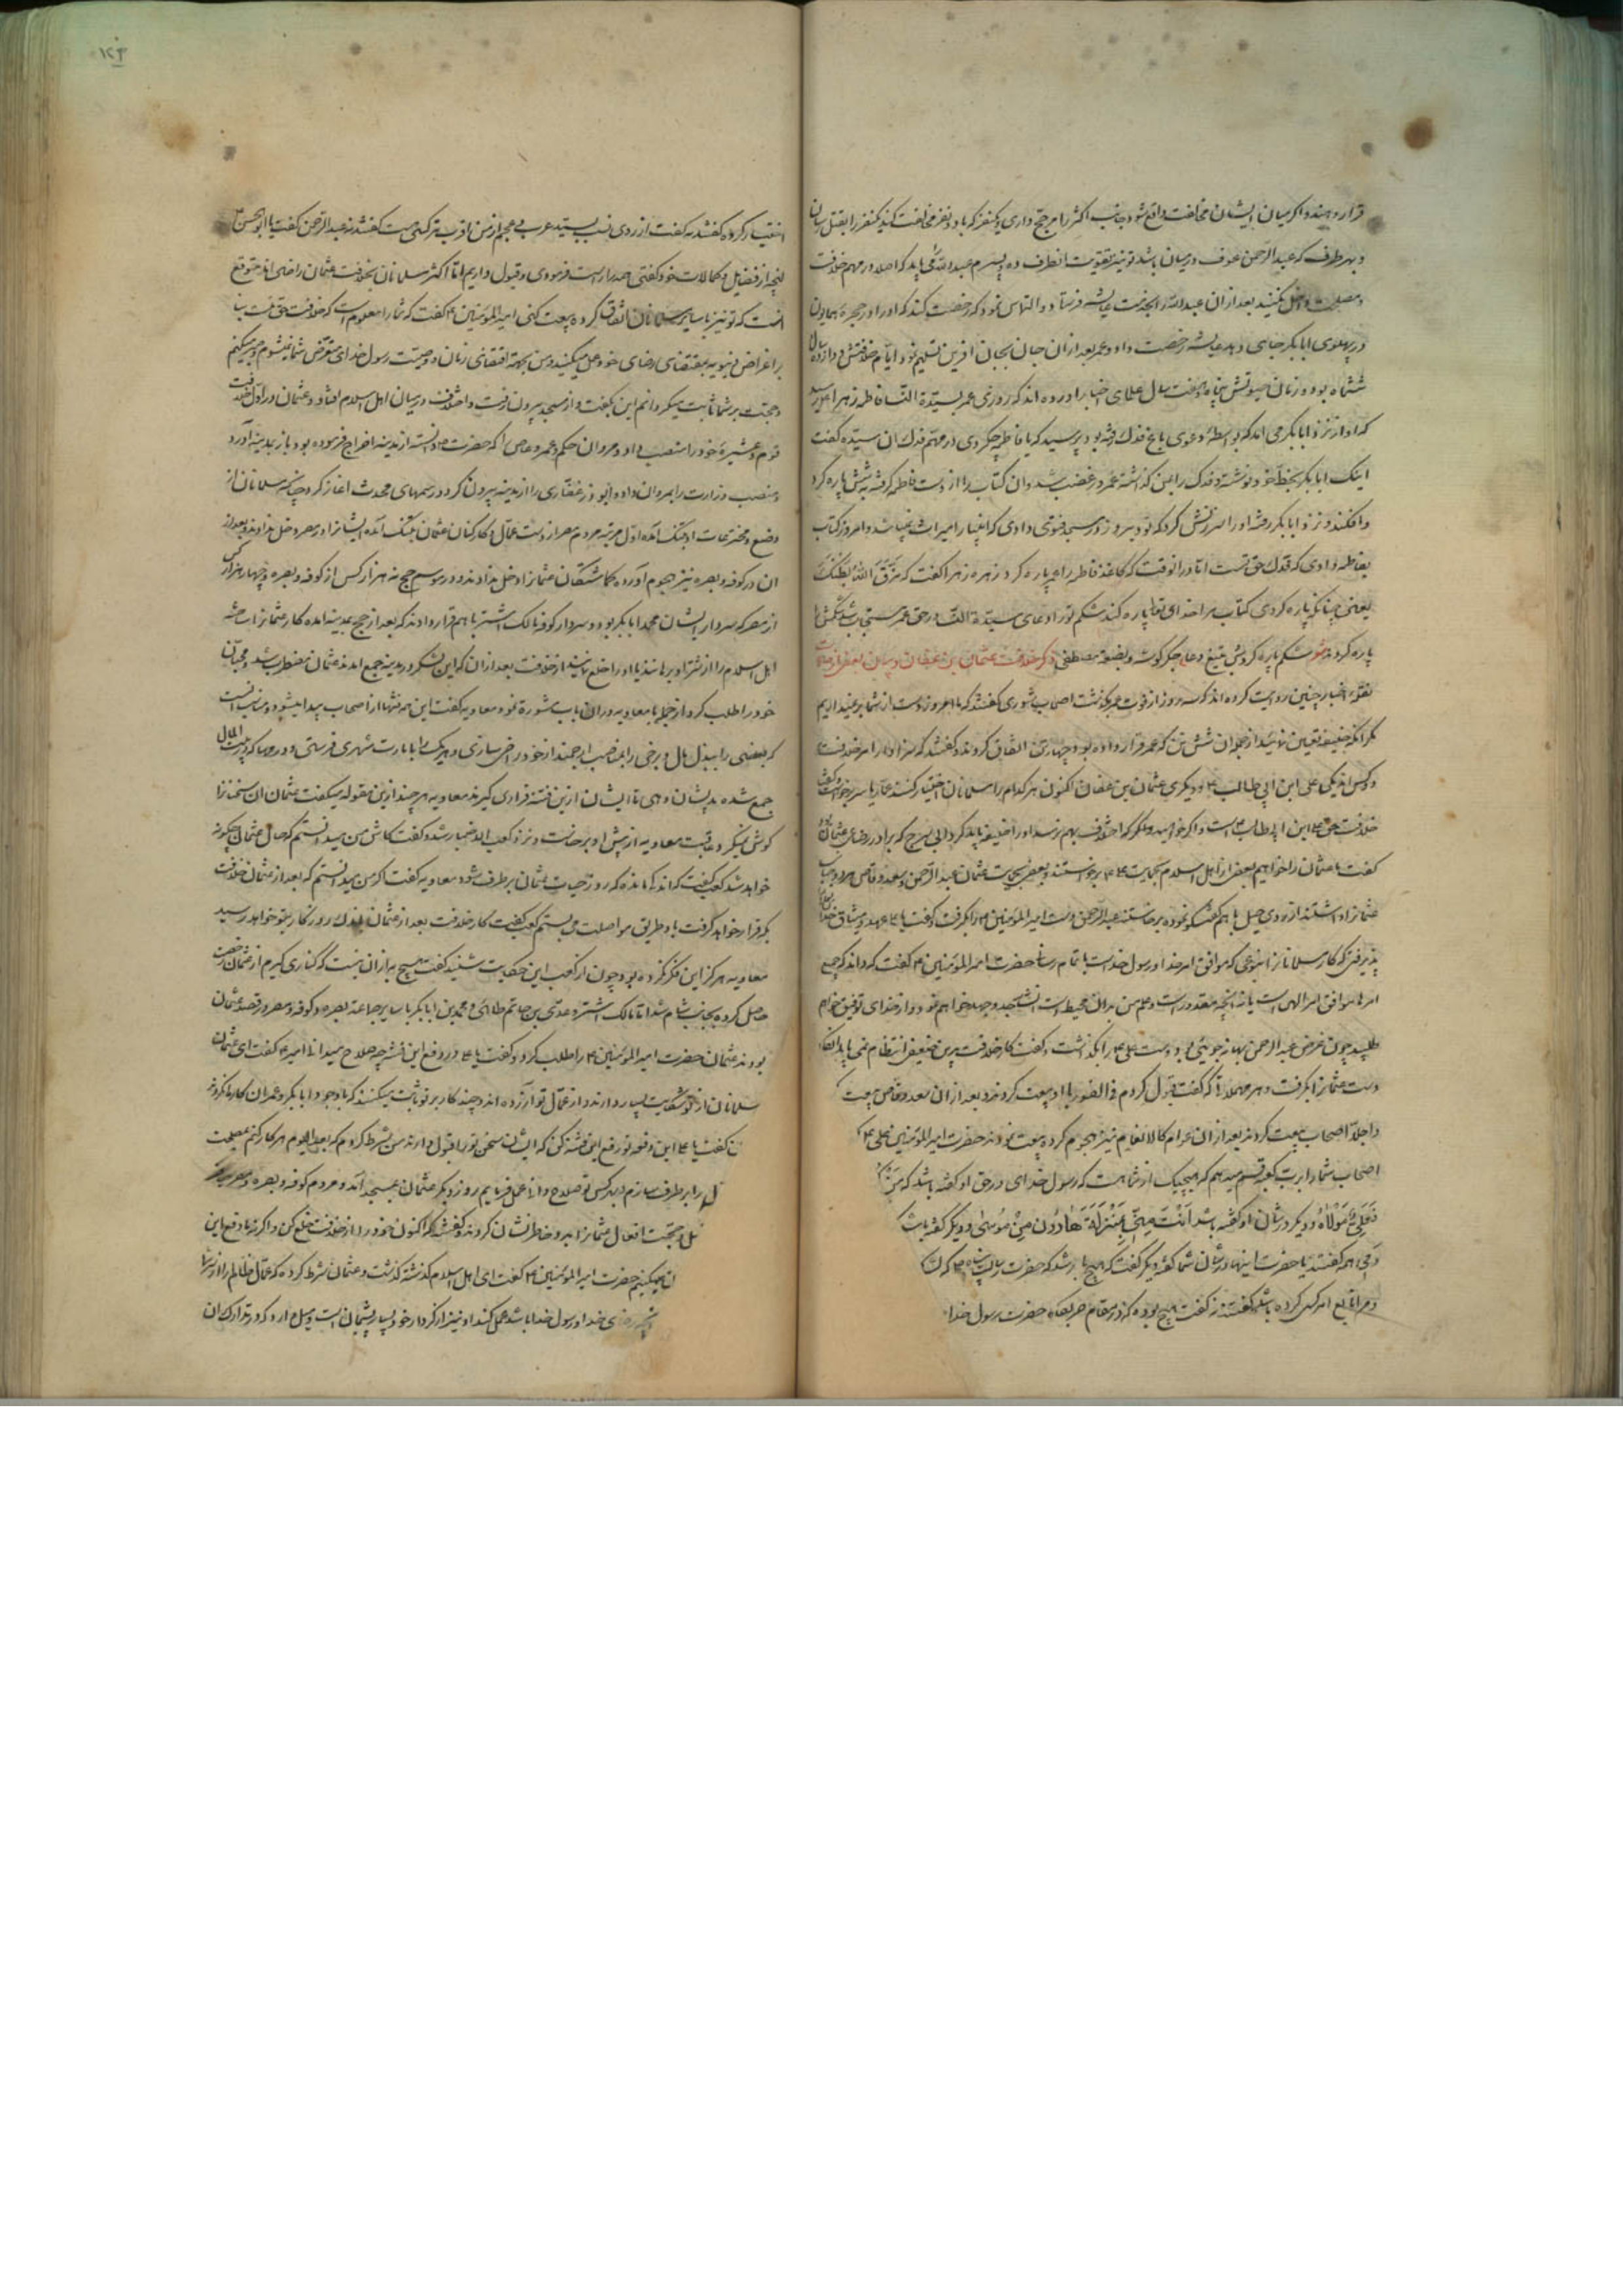 قرار دهند و اگر میان ایشان مخالفت واقع شود جانب اکثر را مرجح داری و یکنفر که با دو نفر مخالفت کند یکنفر را بقتل رسان
و بهر طرف که عبدالرحمن عوف در میان باشد تو نیز تقویت انطرف ده و پسرم عبدالله می باید که اصلا در مهم خلافت
و مصلحت دخل نکنند بعد ازان عبدالله را بخدمت عایشه فرستاد و التماس نمود که رخصت کند که او را در حجره همایون
در پهلوی ابابکر جای دهد عایشه رخصت داد و عمر بعد ازان جان بجان افرین تسلیم نمود و ایام خلافتش دوازده سال
ششماه بود و زمان حیوتش پنجاه و هفت سال علمای اخبار اورده اند که روزی عمر سیدة النسا فاطمه زهرا را دید
که او از نزد ابابکر می اید که بواسطه دعوی باغ فدک رفته بود پرسید که یا فاطمه چه کردی در مهم فدک ان سیده گفت
اینک ابابکر بخط خود نوشته و فدک را بمن گذاشته عمر در غضب شد و ان کتاب را از دست فاطمه گرفته شش پاره کرد
و افکند و نزد ابابکر رفته او را سرزنش کرد که تو دیروز در مسجد فتوی دادی که انبیا را میراث نمیباشد و امروز کتاب
بفاطمه دادی که فدک حق تست اما در انوقت که کاغذ فاطمه را عمر پاره کرد زهره زهرا گفت که مَزَّقَ اللهُ بَطنَکَ
یعنی چنانکه پاره کردی کتاب مرا خدای تعالی پاره کند شکم تو را دعای سیدة النسا در حق عمر مستجاب شد شکمش را
پاره کردند شکم پاره کردش بتیغ دعا جگر گوشه و بضعه مصطفی ذکر خلافت عثمان بن عفان و بیان بعضی از حالات
نقله اخبار چنین روایت کرده اند که سه روز از فوت عمر گذشت اصحاب شوری گفتند که ما امروز دست از شما بر نمیداریم
مگر انکه خلیفه تعیین نمایید از جمله ان شش تن که عمر قرار داده بود چهار تن اتفاق کردند و گفتند که سزاوار امر خلافت
دو کس اند یکی علی ابن ابی طالب ع و دیگری عثمان بن عفان اکنون هر کدام را مسلمانان اختیار کنند عمار یاسر برخواست و گفت
خلافت حق علی ابن ابیطالب است و اگر خواهید و مگر که اختلاف بهم نرسد او را خلیفه باید کرد ابی سرح که برادر رضاعی عثمان بود
گفت ما عثمان را خواهیم بعضی از اهل اسلام بحمایت علی ع برخواستند و بعضی بحمایت عثمان عبدالرحمن و سعد وقاص هر دو جانب
عثمان را داشتند از روی حیل با هم گفتگو نموده برخاستند عبدالرحمن دست امیر المؤمنین ع را بگرفت و گفت یا علی عهد و میثاق خدا
پذیرفتی که کار مسلمانان را بنوعی که موافق امر خدا و رسول خداست باتمام رسانی حضرت امیر المؤمنین ع گفت که داند که جمیع
امرها موافق امر الهی است یا نه انچه مقدور است و علم من بران محیط است انشا جد و جهد خواهم نمود و از خدای توفیق خواهم
طلبید چون غرض عبدالرحمن بهانه جویی بود دست علی ع را بگذاشت و گفت کار خلافت بدین ضعیفی انتظام نمی یابد انگاه
دست عثمان را بگرفت و هر چه علی را گفت گفت قبول کردم فی الفور با او بیعت کردند و بعد ازان سعد وقاص بیعت
و اجلا اصحاب بیعت کردند بعد ازان عوام کالانعام نیز هجوم کرده بیعت نمودند حضرت امیر المؤمنین علی ع
اصحاب شما را برب کعبه قسم میدهم که هیچیک از شما هست که رسول خدای در حق او گفته باشد که مَن
فَعَلِیٌّ مَولَاهُ و دیگر در شان او گفته باشد اَنتَ مِنّی بِمَنزِلَةِ هَارُونَ مِن مُوسیٰ و دیگر گفته باشد
دمی همه گفتند یا حضرت اینها در شان شما گفته دیگر گفت که هیچ یار شد که حضرت رسالت پناه
و مرا تابع امر کسی کرده باشد گفتند نه گفت هیچ بوده که در مقام حربگاه حضرت رسول خدا
۱۲۳
اختیار کرده گفتند نه گفت از روی نسب بسید عرب و عجم از من اقرب تر کسی هست گفتند نه عبدالرحمن گفت یا ابوالحسن
انچه از فضایل و کمالات خود گفتی همه راست فرمودی و قبول داریم اما اکثر مسلمانان بخلافت عثمان راضی اند متوقع
انست که تو نیز با سایر مسلمانان اتفاق کرده بیعت کنی امیر المؤمنین ع گفت که شما را معلوم است که خلافت حق منست بنا
بر اغراض دنیویه بمقتضای ارضای خود عمل میکنید و من بجهة اقتضای زمان و وصیت رسول خدای متعرض شما نمیشوم و صبر میکنم
و حجت بر شما ثابت میکردانم این بگفت و از مسجد بیرون رفت و اختلاف در میان اهل اسلام افتاد و عثمان در اول خلافت
قوم و عشیره خود را منصب داد و مروان حکم و عمرو عاص را که حضرت دانسته از مدینه اخراج فرموده بود باز بمدینه آورد
و منصب وزارت را بمروان داد و ابوذر غفاری را از مدینه بیرون کرد و رسمهای محدث اغاز کرد چنانکه مسلمانان از
وضع و مخترعات او بتنگ آمده اول مرتبه مردم مصر از دست عمال و کارکنان عثمان بتنگ آمده ایشان را در مصر دخل ندادند و بعد از
ان در کوفه و بصره نیز هجوم آورده گماشتگان عثمان را دخل ندادند و در موسم حج نه هزار کس از کوفه و بصره و چهار هزار کس
از مصر که سردار ایشان محمد ابابکر بود و سردار کوفه مالک اشتر با هم قرار دادند که بعد از حج بمدینه امده کار عثمان را ساخته
اهل اسلام را از شر او برهانند یا او را خلع نمایند از خلافت بعد ازان که این لشکر در مدینه جمع امدند عثمان مضطرب شد و محبان
خود را طلب کرد از جمله با معاویه دران باب مشورة نمود معاویه گفت این همه فتنها از اصحاب پیدا میشود و مناسب انست
که بعضی را ببذل مال و برخی را بمناصب ارجمند از خود راضی سازی و هر یک را بامارت شهری فرستی و در وجها که در بیت المال
جمع شده بدیشان دهی تا ایشان ازین فتنه قراری گیرند معاویه هر چند ازین مقوله میگفت عثمان ان سخنان را
گوش نمیکرد عاقبت معاویه از پیش او برخاست و نزد کعب الاخبار شد و گفت کاش من میدانستم که حال عثمان چگونه
خواهد شد کعب گفت که اندکی مانده که روز حیات عثمان برطرف شود معاویه گفت اگر من میدانستم که بعد از عثمان خلافت
بکه قرار خواهد گرفت با او طریق مواصلت می بستم کعب گفت کار خلافت بعد از عثمان باندک روزگار بتو خواهد رسید
معاویه هرگز این فکر نکرده بود چون از کعب این حکایت شنید گفت هیچ به ازان نیست که کناری گیرم از عثمان رخصت
حاصل کرده بجانب شام شد اما مالک اشتر و عدی بن حاتم طائی و محمد بن ابابکر با سایر جماعة بصره و کوفه و مصر در قصد عثمان
بودند عثمان حضرت امیر المؤمنین ع را طلب کرد و گفت یا علی در دفع این فتنه چه صلاح میدانی امیر ع گفت ای عثمان
مسلمانان از تو شکایت بسیار دارند و از عمال تو آزرده اند و چند کار بر تو ثابت میکنند که با وجود ابابکر و عمر ان کارها نکردند
گفت یا علی این دفعه تو رفع این فتنه کن که ایشان سخن تو را قبول دارند من شرط کردم که بعد الیوم هر کار کنم بمصلحت
را برطرف سازم و بهر کس تو صلاح دانی عمل فرمایم روز دیگر عثمان بمسجد آمد و مردم کوفه و بصره و مصر
و حجت افعال عثمان را بدو خاطرنشان کردند و گفتند که اکنون خود را از خلافت خلع کن و اگر نه ما دفع این
میکنیم حضرت امیر المؤمنین ع گفت ای اهل اسلام گذشته گذشت و عثمان شرط کرده که عمال ظالم را از
رضای خدا و رسول خدا باشد عمل کند و نیز از کردار خود بسیار پشیمان است و میل دارد که در تدارک ان